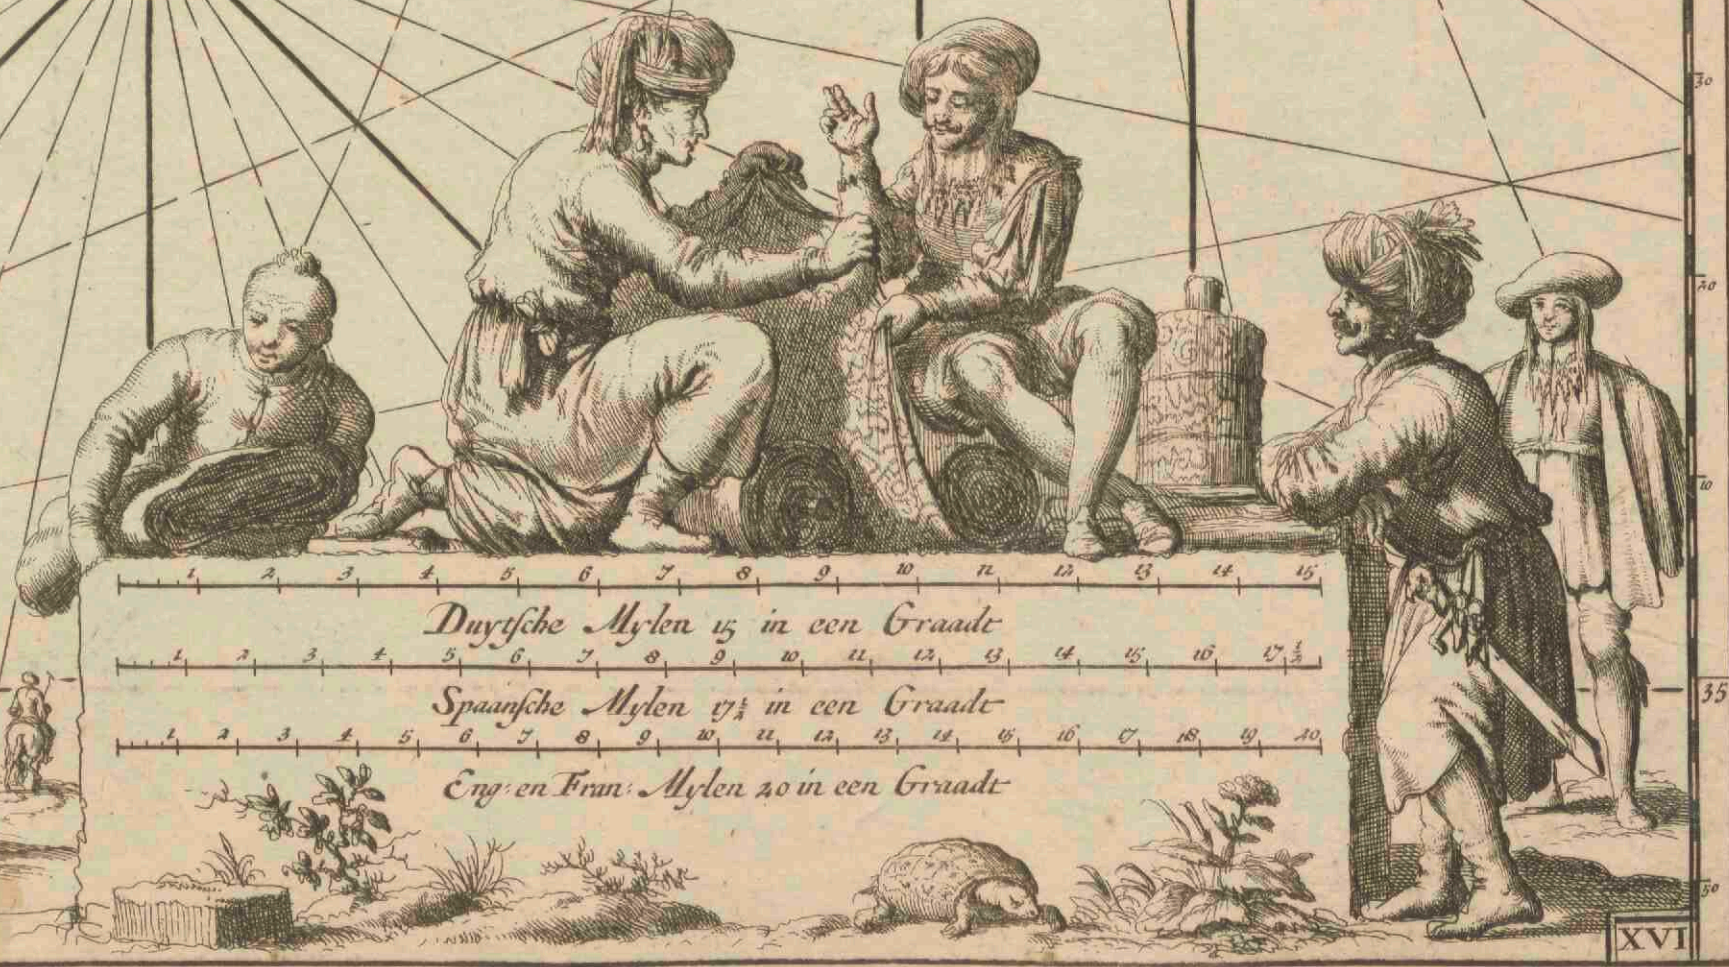 30
20
10
1 2 3 4 5 6 7 8 9 10 11 12 13 14 15
Duytsche Mylen 15 in een Graadt
1 2 3 4 5 6 7 8 9 10 11 12 13 14 15 16 17 ½
Spaansche Mylen 17½ in een Graadt
35
1 2 3 4 5 6 7 8 9 10 11 12 13 14 15 16 17 18 19 20
Eng: en Fran: Mylen 20 in een Graadt
50
XVI